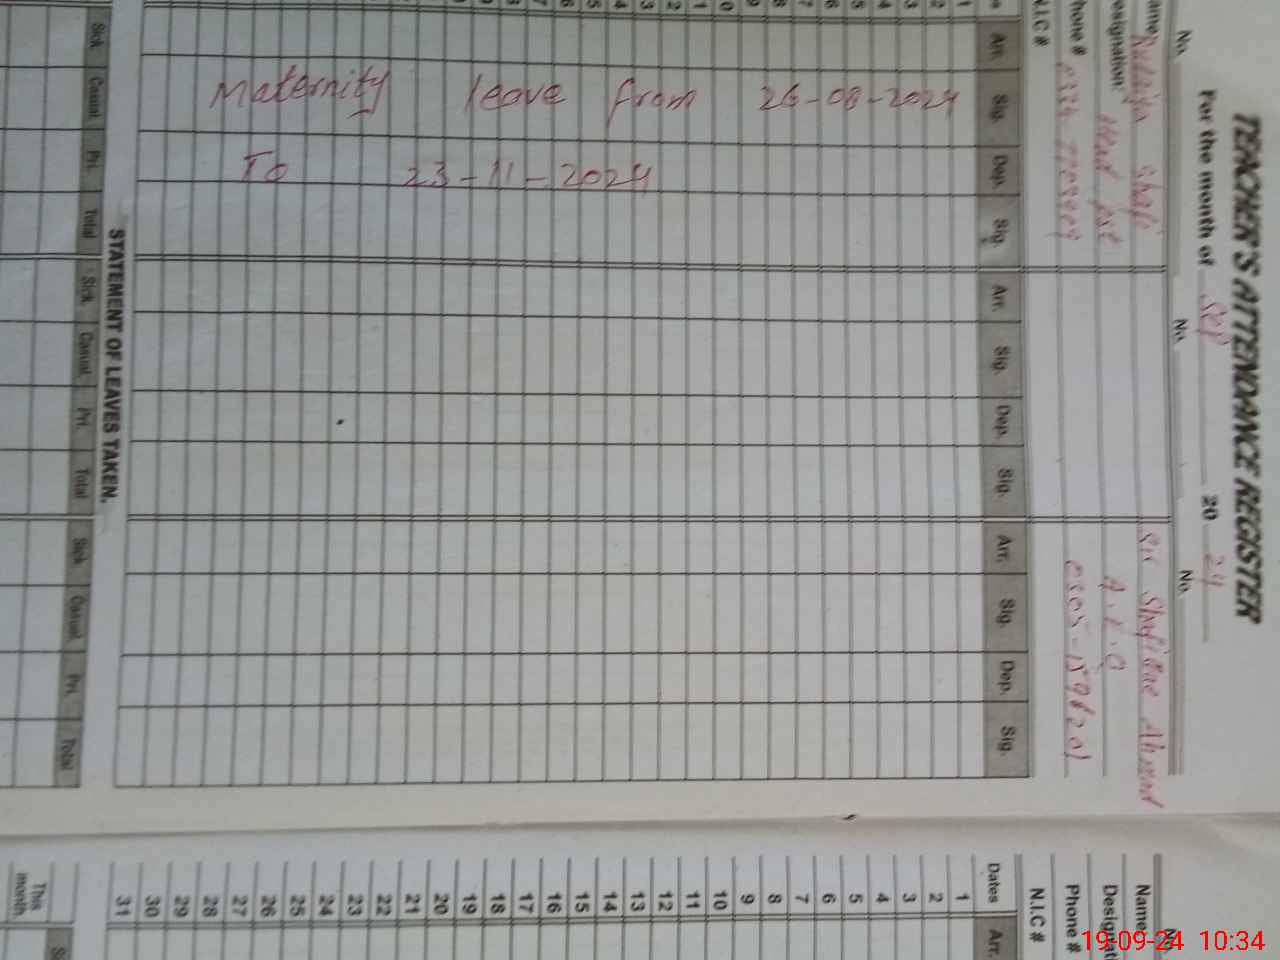 TEACHER'S ATTENDANCE REGISTER
For the month of Sep 20 24
No. No. No.
Shafi
Sir Ahmad
Designation: Head PST
Phone #
N.I.C #
Arr. Sig. Dep. Sig. Arr. Sig. Dep. Sig. Arr. Sig. Dep. Sig.
1
2
3
4
5
6
7
8
9
10
11
12
13
14
15
16
17
18
Maternity leave from 26-08-2024
To 23-11-2024
STATEMENT OF LEAVES TAKEN.
Sick Casual Pri. Total Sick Casual Pri. Total Sick Casual Pri. Total
No.
Name
Designati
Phone #
N.I.C #
Dates Arr.
1
2
3
4
5
6
7
8
9
10
11
12
13
14
15
16
17
18
19
20
21
22
23
24
25
26
27
28
29
30
31
This month
19-09-24 10:34